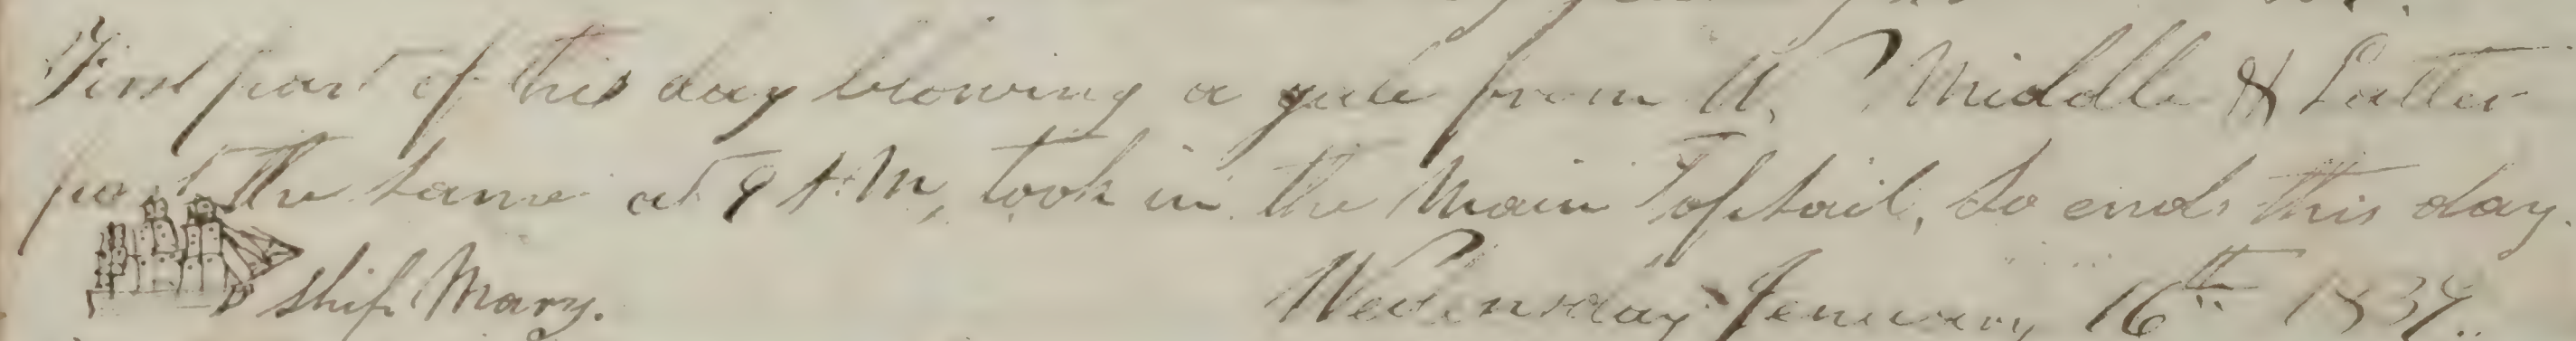 First part of this day blowing a gale from W, Middle & Latter
part the same at 9 A.M, took in the Main Topsail, So ends this day.
Ship Mary. Wedensday Jenuary 16th 1839.